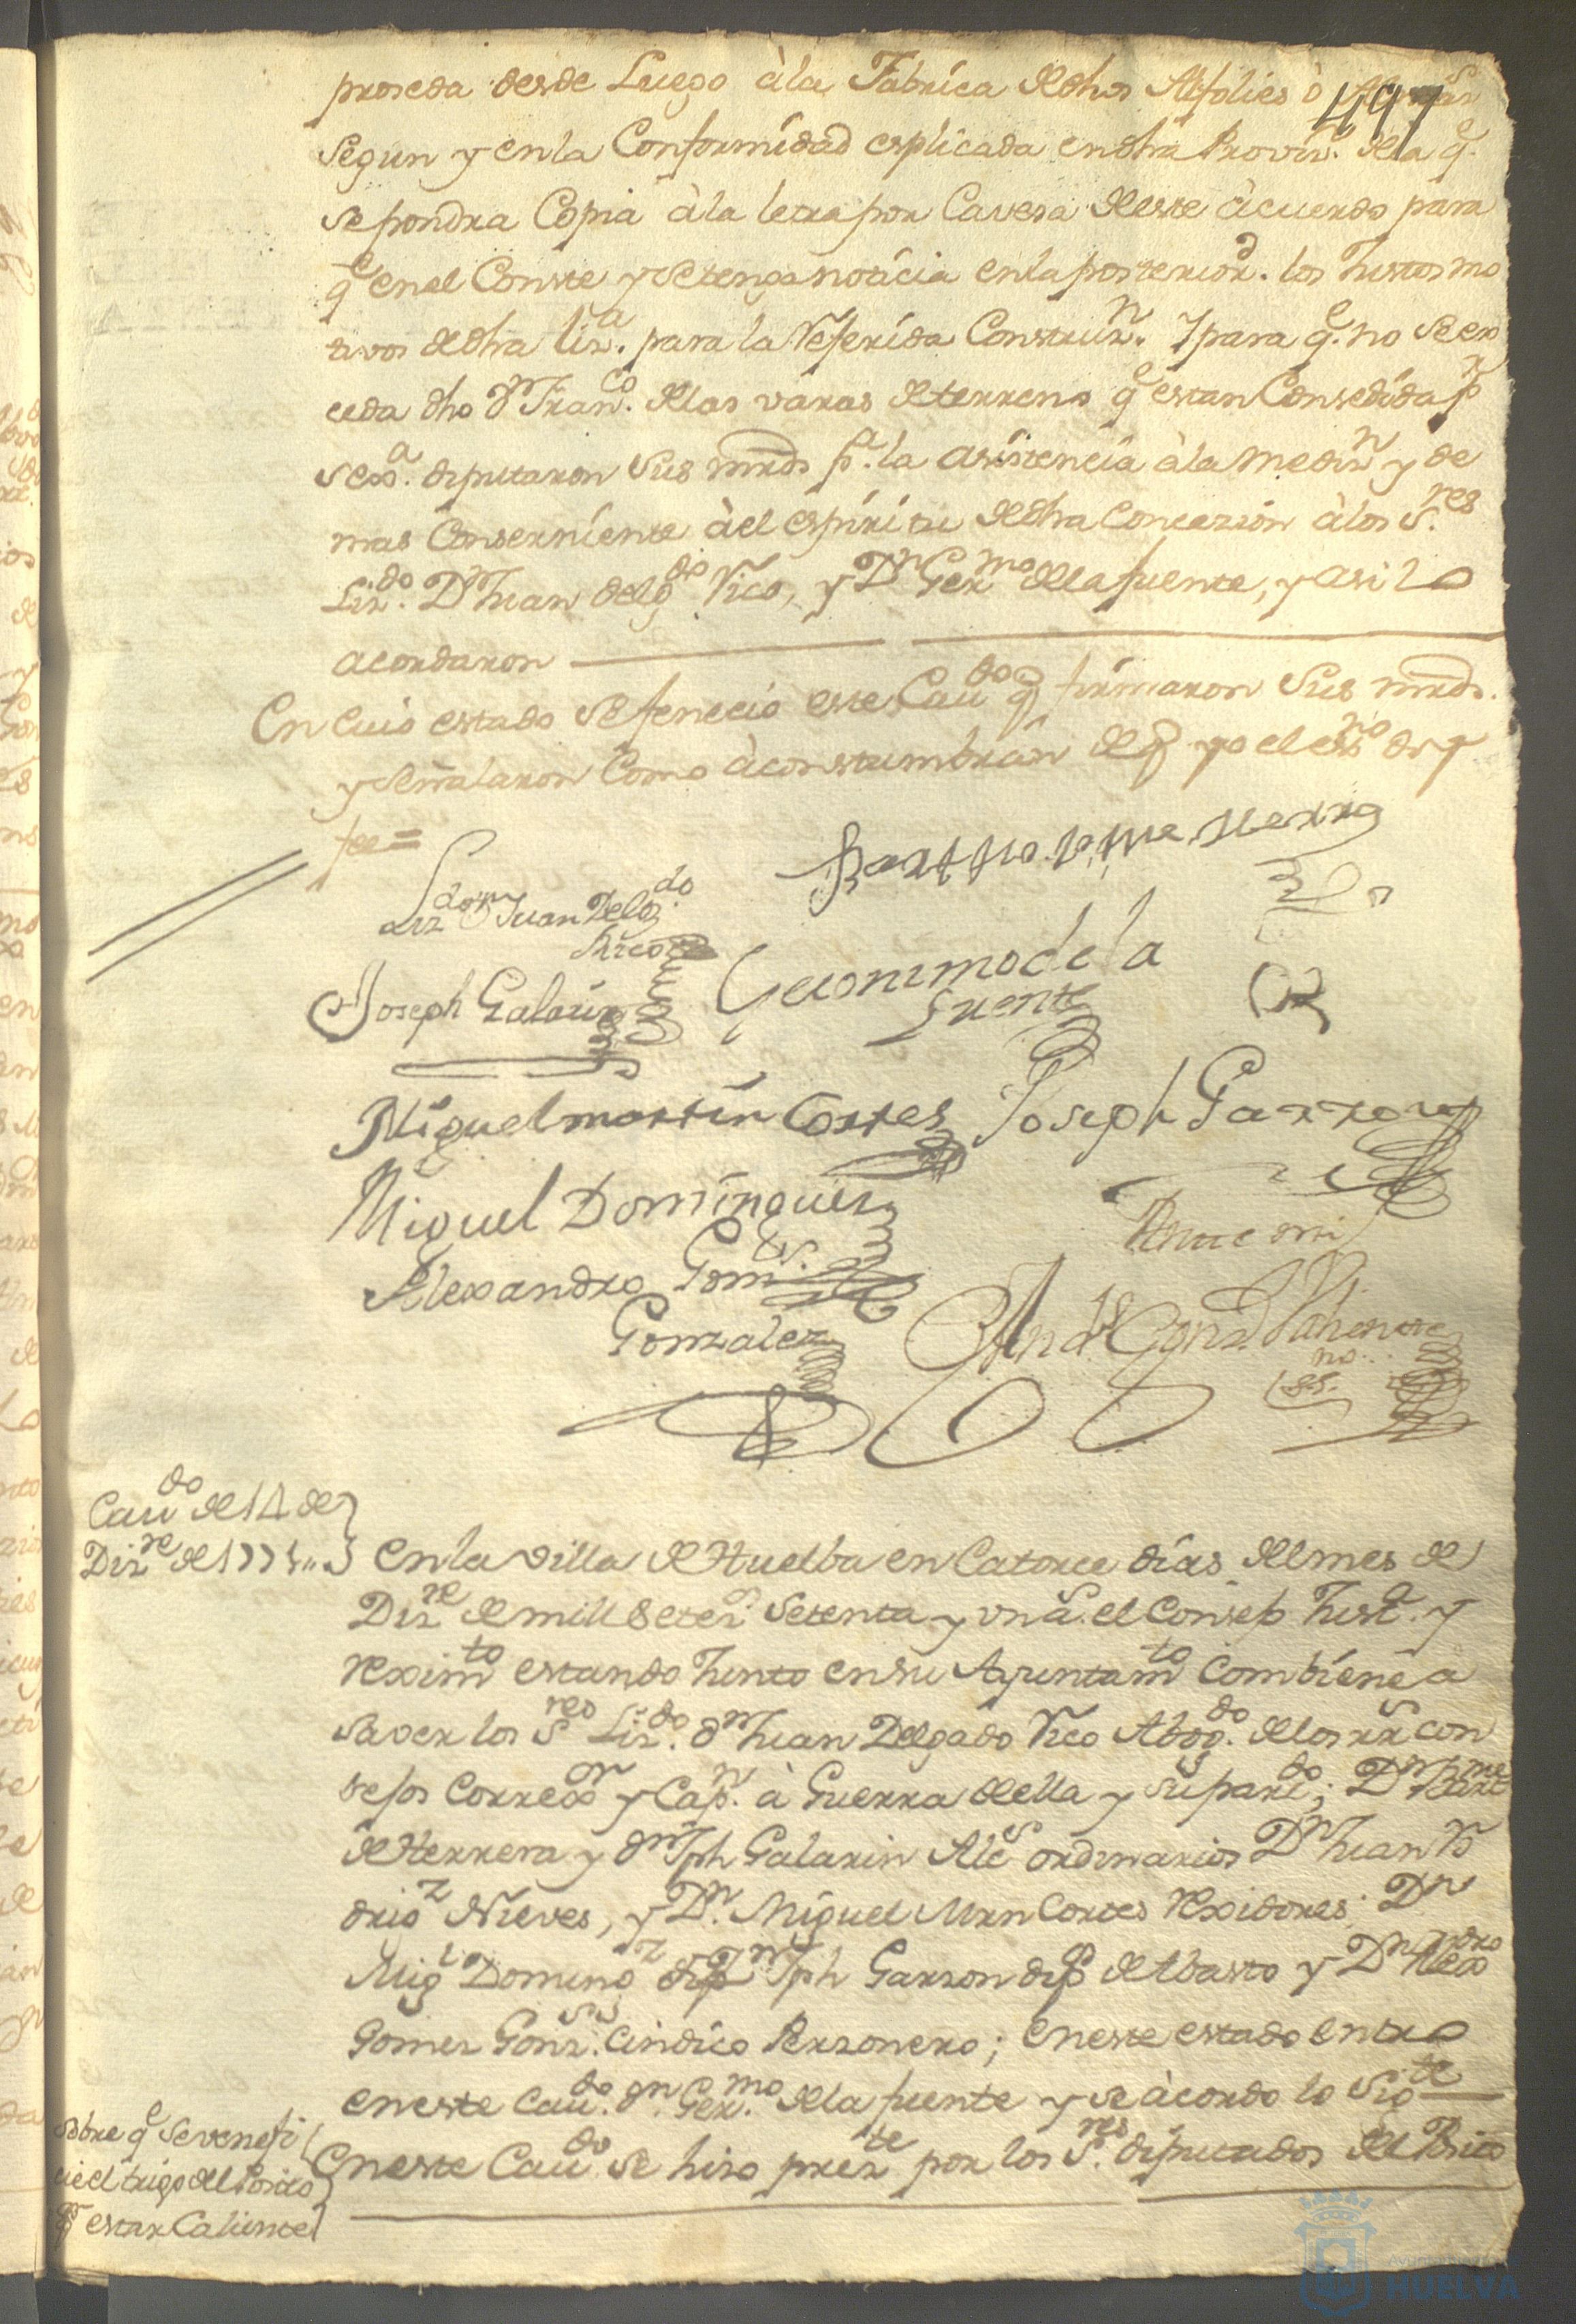 497
proseda desde Luego àla Fabrica de dhos Alfolies ò
Segun y en la Conformidad esplicada en dha Proviz.ª de la q.e
se pondra Copia à la letra por Cavesa de este àcuerdo para
q.e en el Conste y se tenga noticia en la posterior.d los Justos mo
tivos de dha liz.ª para la Referida Construz.n Y para q.e no se ex
ceda dho d.n Fran.co de las varas de terreno q.e estan Consedida p.r
s ex.ª diputaron Sus mrds p.ª la asistencia à la mediz.n y de
mas Conserniente à el espiritu de dha Concezion à los S.res
Liz.do D.n Juan Delg.do Rico, y D.n Ger.mo de la fuente, y asi lo
acordaron
En cuio estado se fenecio este Cau.do q firmaron Sus mrds.
y señalaron Como àconstumbran de q yo el ess.no doy
fee=
Bartholome Herrera
Liz.do d.n Juan Delg.do
Rico
Geronimo de la
fuente
Joseph Galarin
Miguel martin Cortes
Joseph Garzon
Miguel Dominguez
Ante mi
Alexandro Gom.s
Gonzalez
And.s Gonz.
ss.no
Cau.do de 14 de
Diz.re de 1771..
En la villa de Huelba en Catorce dias del mes de
Diz.re de mill setez.s setenta y un a.s el Consejo Just.ª y
reximto estando Junto en su Ayuntam.to Combiene a
saver los S.res Liz.do d.n Juan Delgado Rico Abog.do de los R.s Con
sejos Correx.or y Cap.n à Guerra de ella y su part.do; D.n Bart.me
de Herrera y d.n Jph Galarin Alc.s ordinarios D.n Juan Ro
drig.z Nieves, y D.n Miguel Mrn Cortes Rexidores; D.n
Mig.l Doming.z d.n Jph Garzon dip.s de Abasto y D.n Alexandro
Gomez Gonz.s Cindico Perzonero; en este estado entro
en este Cau.do d.n Ger.mo de la fuente y se àcordo lo Sig.te
sobre q.e se venefi
cie el trigo del Posito
p.r estar Caliente
En este Cau.do se hizo prez.te por los S.res diputados del Posito
Ayuntamiento
HUELVA